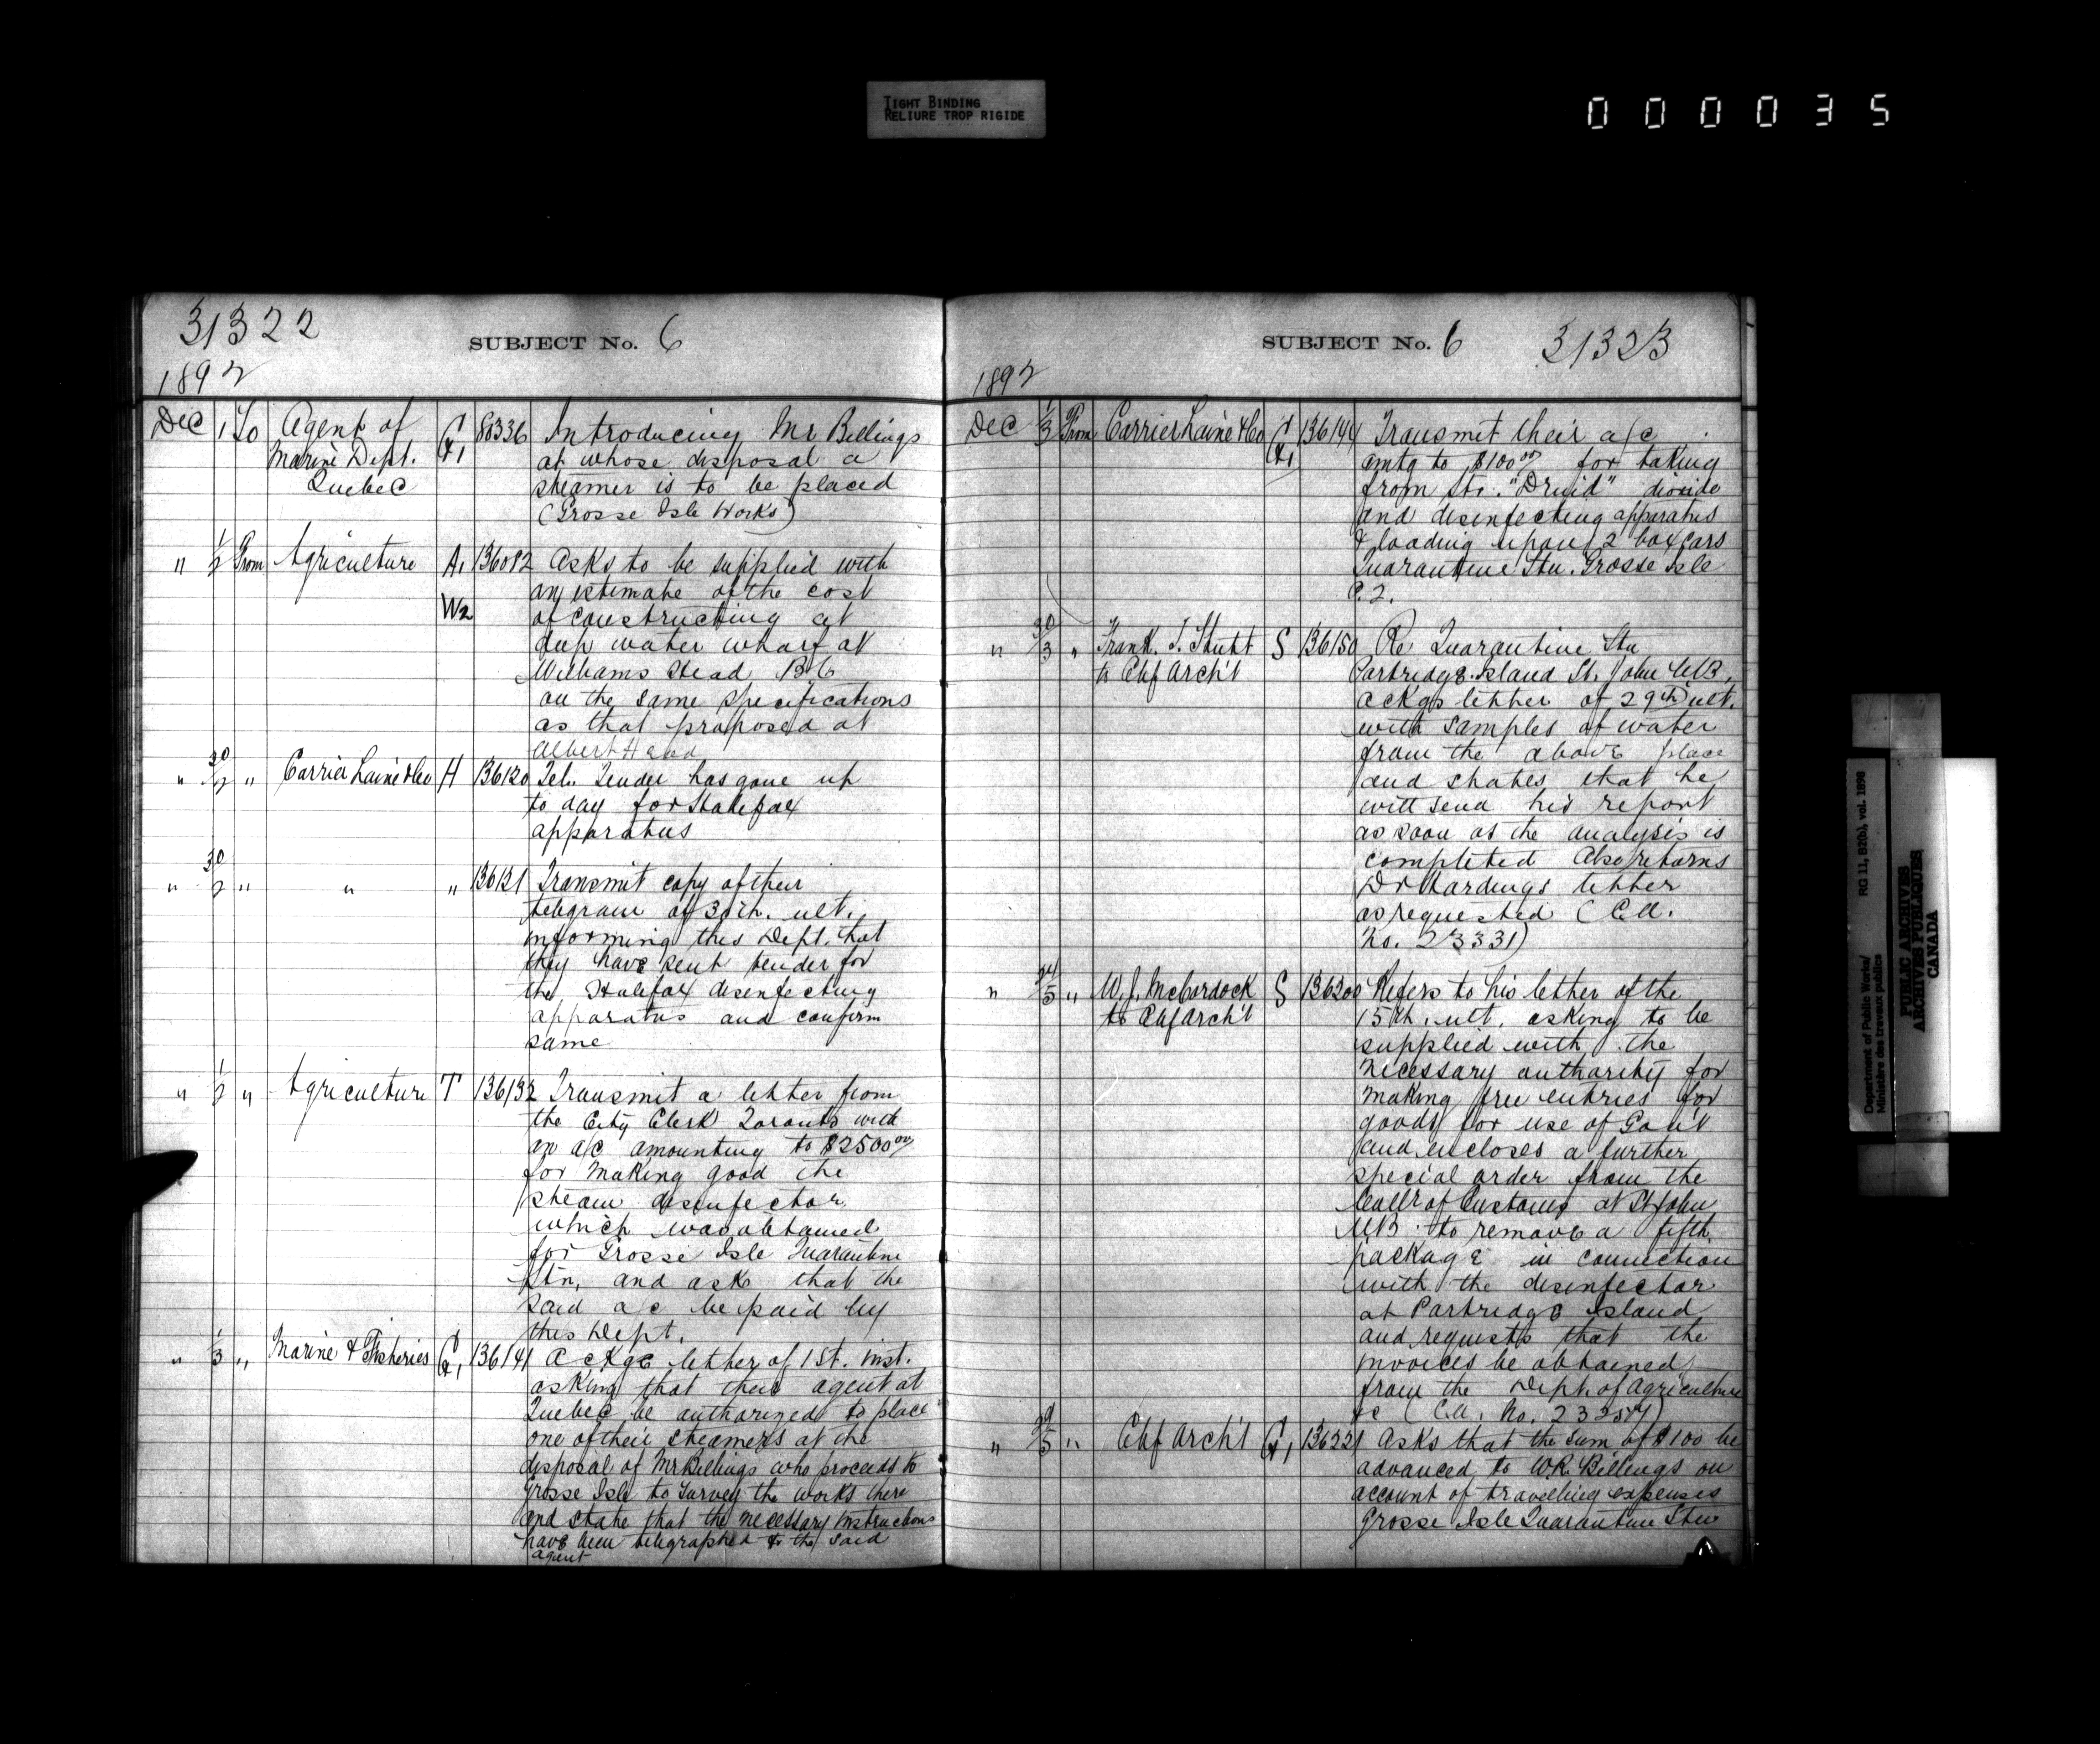 TIGHT BINDING
RELIURE TROP RIGIDE
000035
31322
SUBJECT No. 6
1892
Dec 1 To Agent of Marine Dept. Quebec G1 80336 Introducing Mr Billings
at whose disposal a
steamer is to be placed
(Grosse Isle Works)
" 1/2 From Agriculture A1 W2 136082 Asks to be supplied with
an estimate of the cost
of constructing a
deep water wharf at
Williams Head B C
on the same specifications
as that proposed at
Albert Head
" 30/2 " Carrier Laine & Co H 136120 Tel. Tender has gone up
to day for Halifax
apparatus
" 30/2 " " " 136121 Transmit copy of their
telegram of 30th. ult.
informing this Dept. that
they have sent tender for
the Halifax disinfecting
apparatus and confirm
same
" 1/2 " Agriculture T 136132 Transmit a letter from
the City Clerk Toronto with
an a/c amounting to $2500.00
for making good the
steam disinfector
which was obtained
for Grosse Isle Quarantine
Stn, and ask that the
said a/c be paid by
this Dept.
" 1/3 " Marine & Fisheries G1 136141 Ackge letter of 1st. inst.
asking that their agent at
Quebec be authorized to place
one of their steamers at the
disposal of Mr Billings who proceeds to
Grosse Isle to survey the works there
and state that the necessary instructions
have been telegraphed to the said
agent
SUBJECT No. 6 31323
1892
Dec 1/3 From Carrier Laine & Co G1 136144 Transmit their a/c
amtg to $100.00 for taking
from Str. "Druid" dioxide
and disinfecting apparatus
& loading upon 2 box cars
Quarantine Stn. Grosse Isle
P.Q.
" 30/3 " Frank T. Shutt to Chf Arch't S 136150 Re Quarantine Stn
Partridge Island St. John N.B.
Ackgs letter of 29th ult.
with samples of water
from the above place
and states that he
will send his report
as soon as the analysis is
completed Also returns
Dr Hardings letter
as requested (C.A.
No. 23331)
" 24/5 " W. J. McCordock to Chf Arch't S 136200 Refers to his letter of the
15th. ult. asking to be
supplied with the
necessary authority for
making free entries for
goods for use of Gov't
and encloses a further
special order from the
Collr of Customs at St John
N.B. to remove a fifth
package in connection
with the disinfector
at Partridge Island
and requests that the
invoices be obtained
from the Dept. of Agriculture
&c (C.A. No.
" 29/5 " Chf Arch't G1 136221 Asks that the sum of $100 be
advanced to W.R. Billings on
account of travelling expenses
Grosse Isle Quarantine Stn
Department of Public Works/ RG 11, B2(b), vol. 1898
Ministère des travaux publics
PUBLIC ARCHIVES
ARCHIVES PUBLIQUES
CANADA